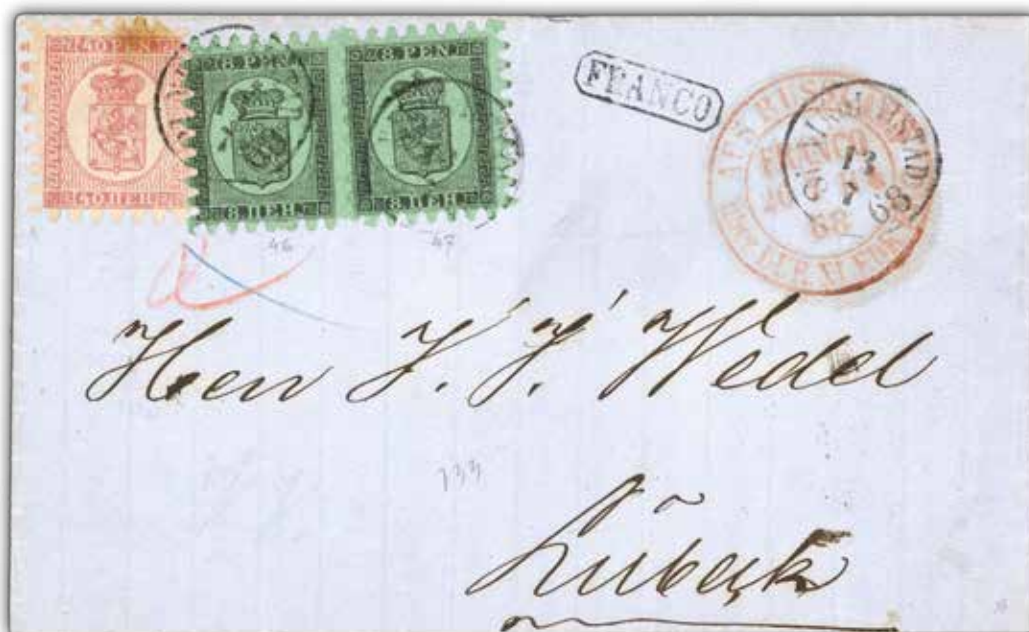 40 PEN.
40 ПЕН.
8. PEN.
8. ПЕН.
8. PEN.
8. ПЕН.
FRANCO
AUS RUSSLAND
FRANCO
68
13
7
68
46
47
Herrn J. J. Wedel
133
Lübeck